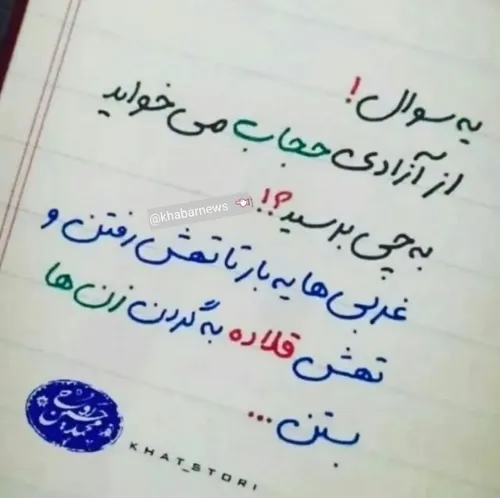 یه سوال!
از آزادی حجاب می خواید
به چی برسید؟!!
@khabarnews
غربی ها یه بار تا تهش رفتن و
تهش قلاده به گردن زن ها
بستن ...
KHAT_STORI